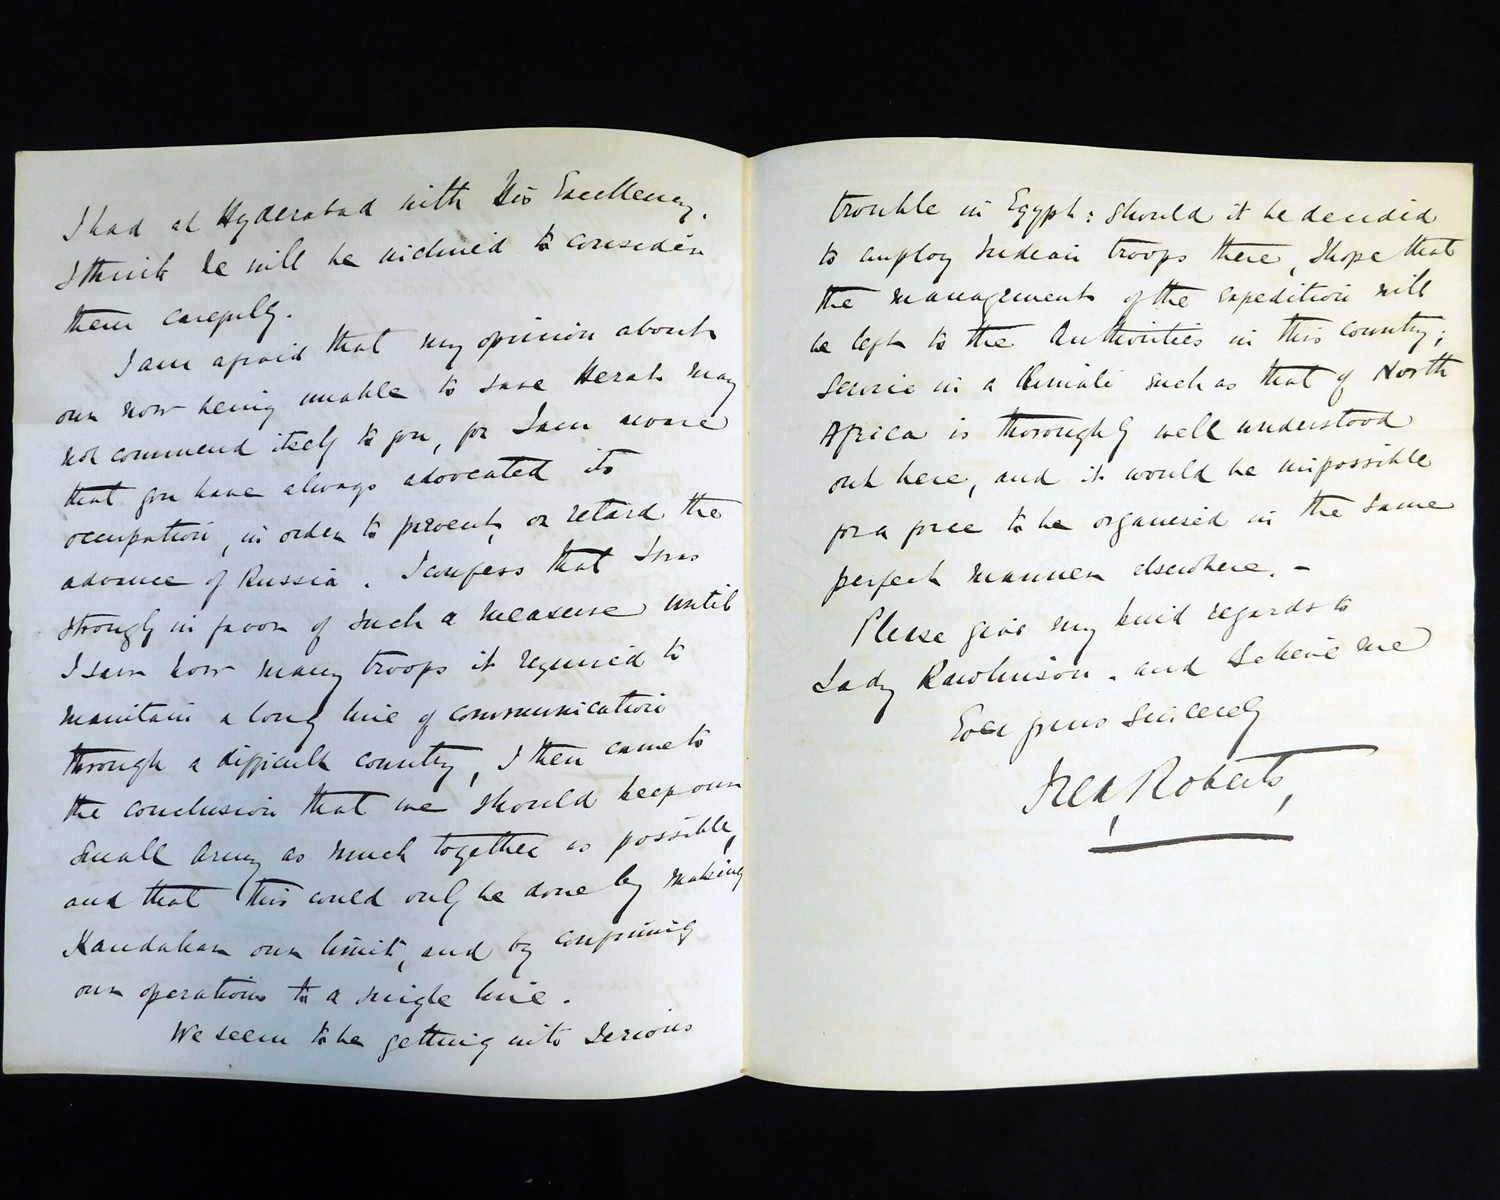 I had at Hyderabad with His Excellency.
I think he will be inclined to consider
them carefully.
I am afraid that my opinion about
our now being unable to save Herat may
not commend itself to you, for I am aware
that you have always advocated its
occupation, in order to prevent, or retard the
advance of Russia. I confess that I was
strongly in favor of such a measure until
I saw how many troops it required to
maintain a long line of communication
through a difficult country, I then came to
the conclusion that we should keep our
small army as much together as possible,
and that this could only be done by making
Kandahar our limit, and by confining
our operations to a single line.
We seem to be getting into serious
trouble in Egypt: should it be decided
to employ Indian troops there, I hope that
the management of the expedition will
be left to the Authorities in this country;
service in a climate such as that of North
Africa is thoroughly well understood
out here, and it would be impossible
for a force to be organised in the same
perfect manner elsewhere. –
Please give my kind regards to
Lady Rawlinson. and believe me
Ever yours sincerely
Fred, Roberts,